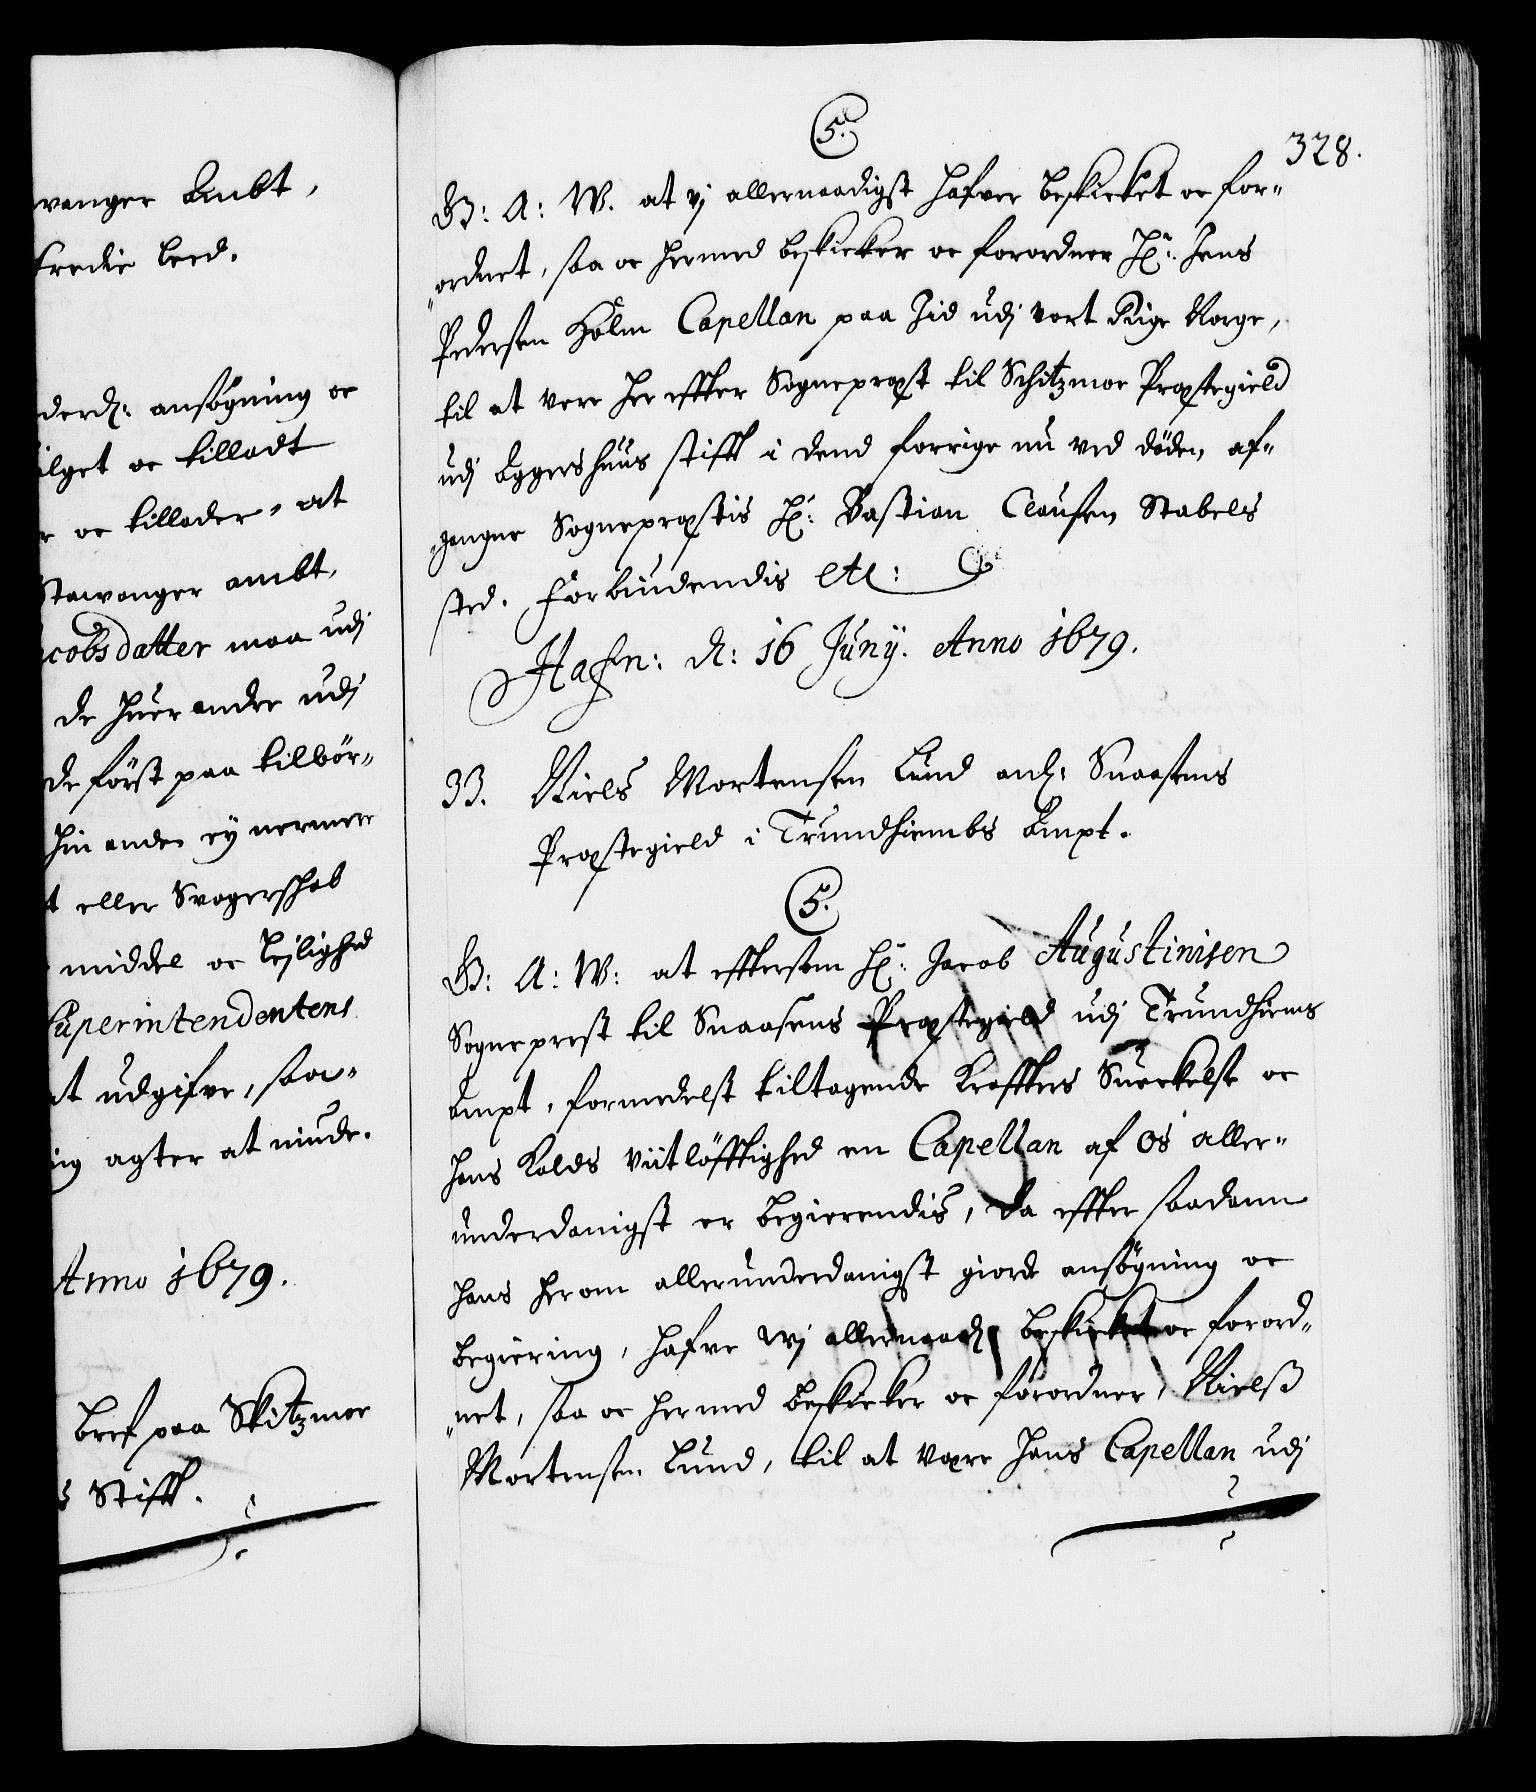 wanger Ambt,
tredie Leed.
derd: ansögning oc
ilget oc tilladt
r oc tillader, at
Stawanger ambt,
cobsdatter maa udj
de huer andre udj
de först paa tilbör-
hin anden ej nermere
t eller Svogerschab
middel oc Lejlighed
Superintendentens
t udgifve, saa-
ng agter at niude.
Anno 1679.
Bref paa Skitzmoe
s Stifft.
328.
5.
G: A: W. at vj allernaadigst hafver beskicket oc for-
ordnet, saa oc hermed beskicker oc forordner Hr: Jens
Pedersen Holm Capellan paa Lid udj vort Rige Norge,
til at vere her effter Sognepræst til Schitzmoe Præstegield
udj Aggershuus stifft i dend forrige nu ved döden af-
gangne Sognepræstis Hr: Bastian Clausen Stabels
sted. Forbiudendis etc:
Hafn: d: 16 Junij. Anno 1679.
33. Niels Mortensen Lund anl: Snaasens
Præstegield i Trundhiembs Ampt.
5.
G: A: W: at efftersom Hr: Jacob Augustinisen
Sogneprest til Snaasens Præstegield udj Trundhiems
Ampt, formedelst tiltagende Krafters Suækelse oc
hans Kalds viitlöfftighed en Capellan af os aller-
underdanigst er begierendis, Da effter saadann
hans herom allerunderdanigst giorde ansögning oc
begiering, hafve wj allernaad: beskicket oc forord-
net, saa oc hermed beskicker oc forordner, Nielss
Mortensen Lund, til at være hans Capellan udj